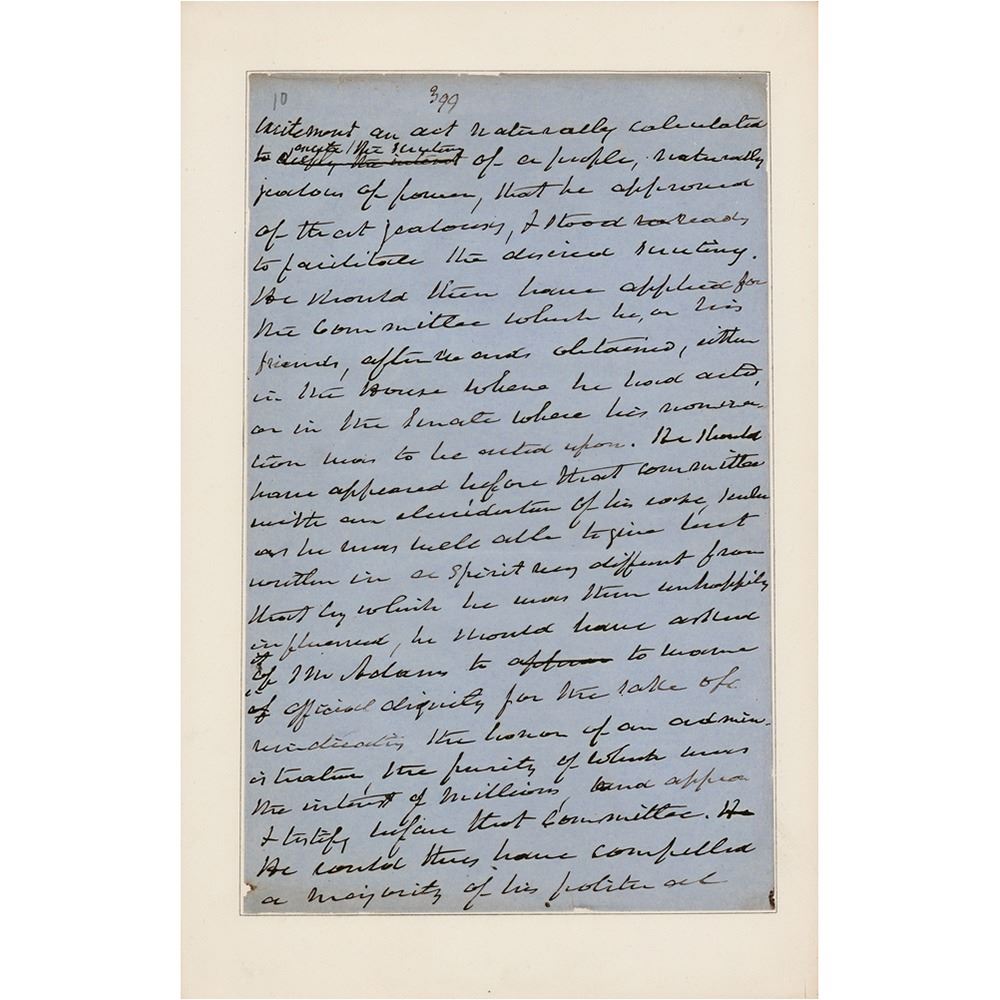 10
399
excitement an act naturally calculated
excite the scrutiny
to deeply the interest of a people, naturally
jealous of power, that he approved
of that jealousy, & stood ready
to facilitate the desired scrutiny.
He should then have applied for
the Committee which he, or his
friends, afterwards obtained, either
in the House where he had acted,
or in the Senate where his nomina-
tion was to be acted upon. He should
have appeared before that committee
with an elucidation of his case, such
as he was well able to give but
written in a spirit very different from
that by which he was then unhappily
influenced, he should have asked
of Mr Adams to to wave
of official dignity for the sake of
vindicating the honor of an admin-
istration, the purity of which was
the interest of millions, and appear
& testify before that Committee. He
He could thus have compelled
a majority of his political